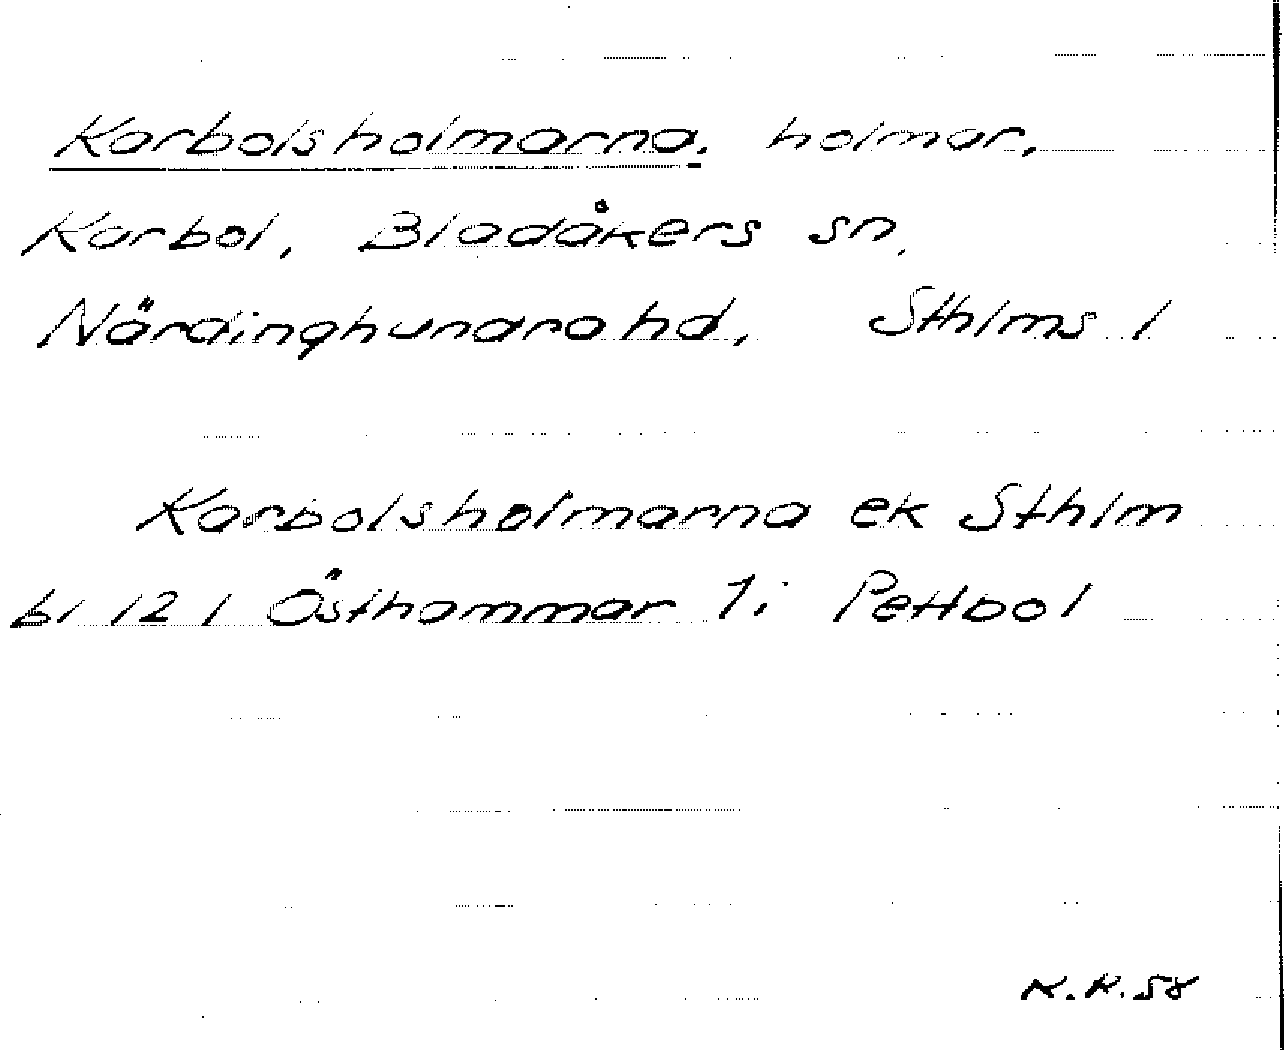 Karbolsholmarna, holmar,
Karbol, Bladåkers sn,
Närdinghundra hd, Sthlms l
Karbolsholmarna ek Sthlm
bl 121 Östhammar 7i Pettbol
K.K.58